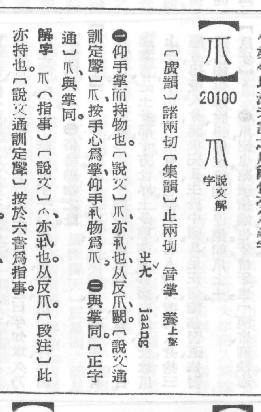 【𤓯】20100 𤓯 說文解字
〔廣韻〕諸兩切〔集韻〕止兩切 音掌 養上聲
ㄓㄤˇ jaang
㊀仰手掌而持物也。〔說文〕𤓯、亦丮也。从反爪。闕。〔說文通
訓定聲〕𤓯、按手心爲掌、仰手丮物爲𤓯。㊁與掌同。〔正字
通〕𤓯、與掌同。
解字 𤓯（指事）〔說文〕𤓯、亦丮也。从反爪。〔段注〕此
亦持也。〔說文通訓定聲〕按於六書爲指事。